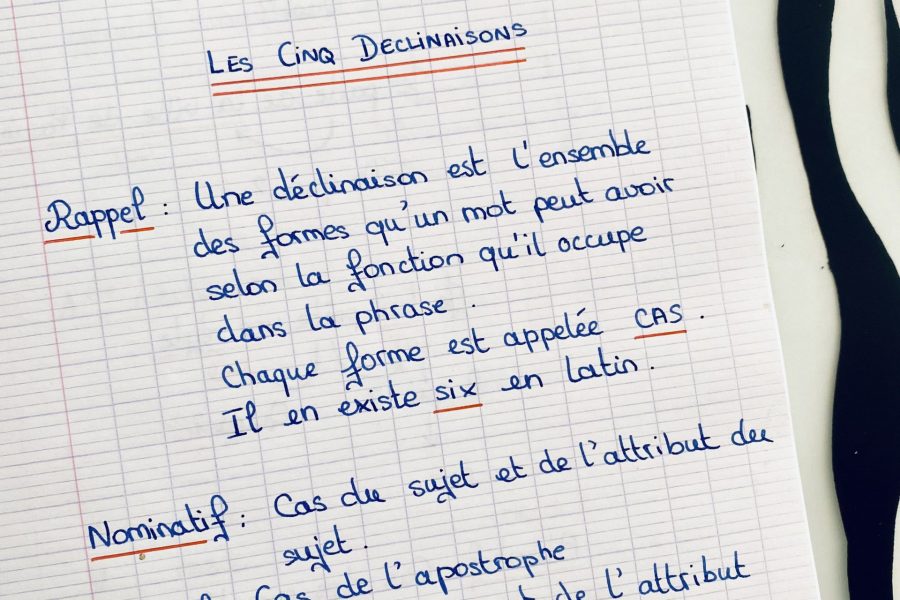 LES CINQ DECLINAISONS
Rappel : Une déclinaison est l'ensemble
des formes qu'un mot peut avoir
selon la fonction qu'il occupe
dans la phrase .
Chaque forme est appelée CAS .
Il en existe six en latin .
Nominatif : Cas du sujet et de l'attribut du
sujet .
Cas de l'apostrophe
et de l'attribut